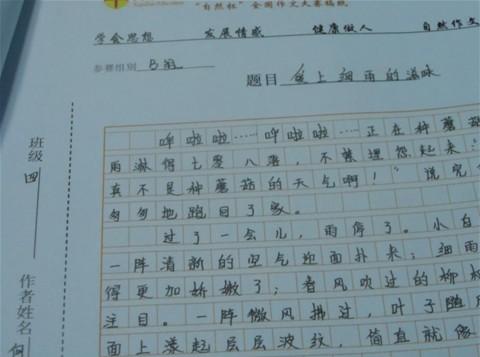 “自然杯”全国作文大赛稿纸
学会思想 发展情感 健康做人 自然作文
参赛组别 B组
题目 爱上细雨的滋味
班级 四
作者姓名 何
哗啦啦……哗啦啦……正在种蘑菇
雨淋得七零八落，不禁埋怨起来
真不是种蘑菇的天气啊！”说完
匆匆地跑回了家。
过了一会儿，雨停了。小白
一阵清新的空气迎面扑来；细雨
得更加娇嫩了；春风吹过的柳
注目。一阵微风拂过，叶子随
面上漾起层层波纹，简直就像